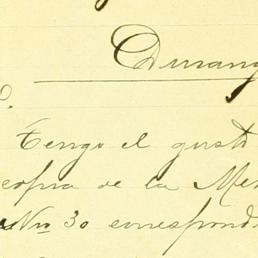 Durang
Tengo el gust
copia de la Me
Nº 30 correspond